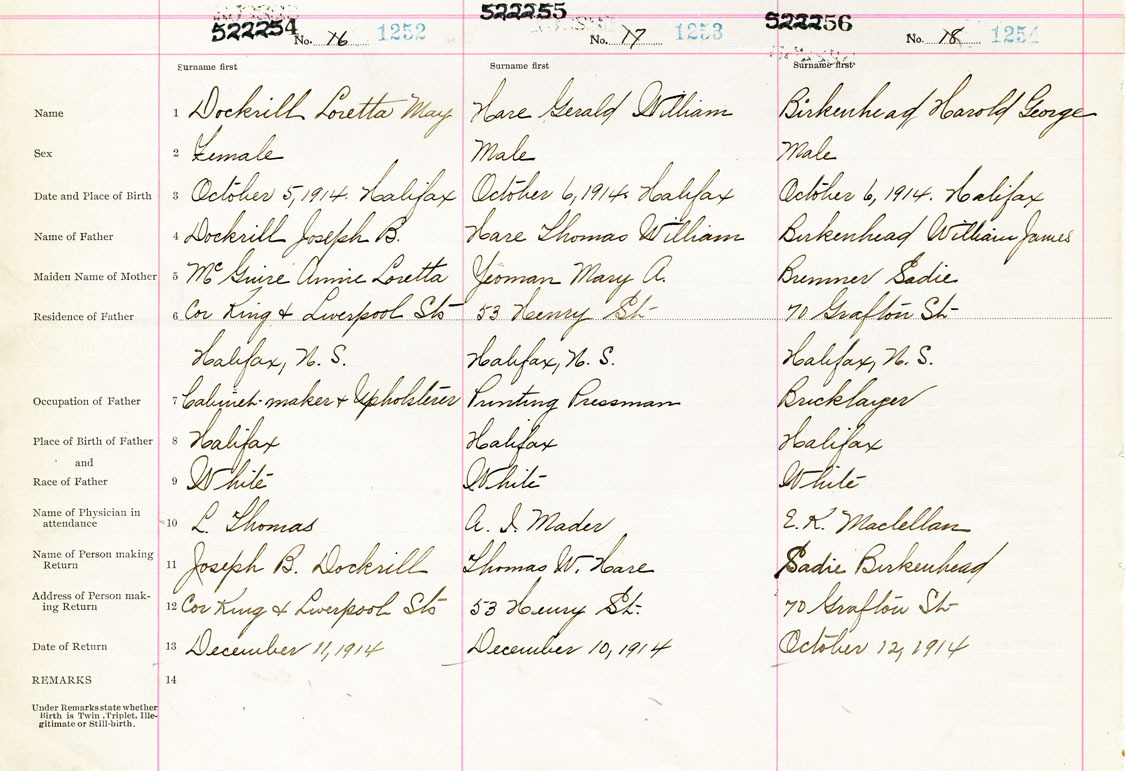 522254 522255 522256
No. 16 1252 No. 17 1253 No. 18 1254
Surname first Surname first Surname first
Name 1 Dockrill Loretta May Hare Gerald William Birkenhead Harold George
Sex 2 Female Male Male
Date and Place of Birth 3 October 5, 1914. Halifax October 6, 1914. Halifax October 6, 1914. Halifax
Name of Father 4 Dockrill Joseph B. Hare Thomas William Birkenhead William James
Maiden Name of Mother 5 McGuire Annie Loretta Yeoman Mary A. Bremner Sadie
Residence of Father 6 Cor King & Liverpool Sts 53 Henry St. 70 Grafton St.
Halifax, N. S. Halifax, N. S. Halifax, N. S.
Occupation of Father 7 Cabinet-maker & Upholsterer Printing Pressman Bricklayer
Place of Birth of Father 8 Halifax Halifax Halifax
and
Race of Father 9 White White White
Name of Physician in
attendance 10 L. Thomas A. I. Mader E. K. Maclellan
Name of Person making
Return 11 Joseph B. Dockrill Thomas W. Hare Sadie Birkenhead
Address of Person mak-
ing Return 12 Cor King & Liverpool Sts 53 Henry St. 70 Grafton St.
Date of Return 13 December 11, 1914 December 10, 1914 October 12, 1914
REMARKS 14
Under Remarks state whether
Birth is Twin, Triplet, Ille-
gitimate or Still-birth.